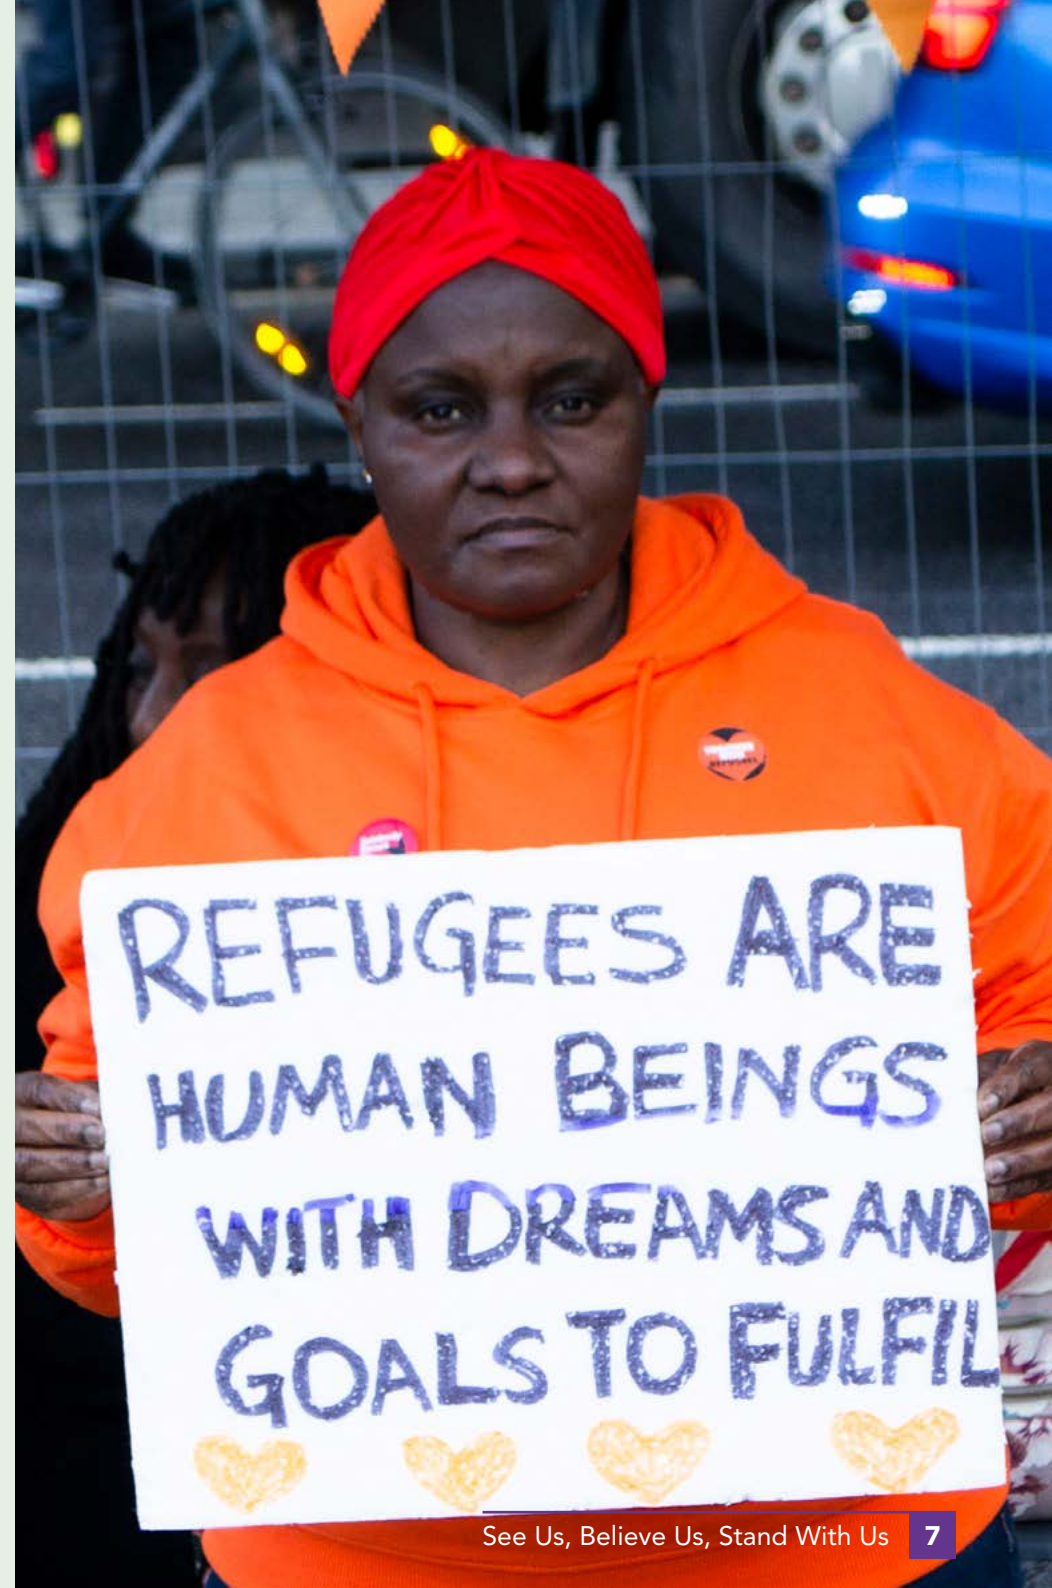 REFUGEES ARE
HUMAN BEINGS
WITH DREAMS AND
GOALS TO FULFIL
See Us, Believe Us, Stand With Us 7